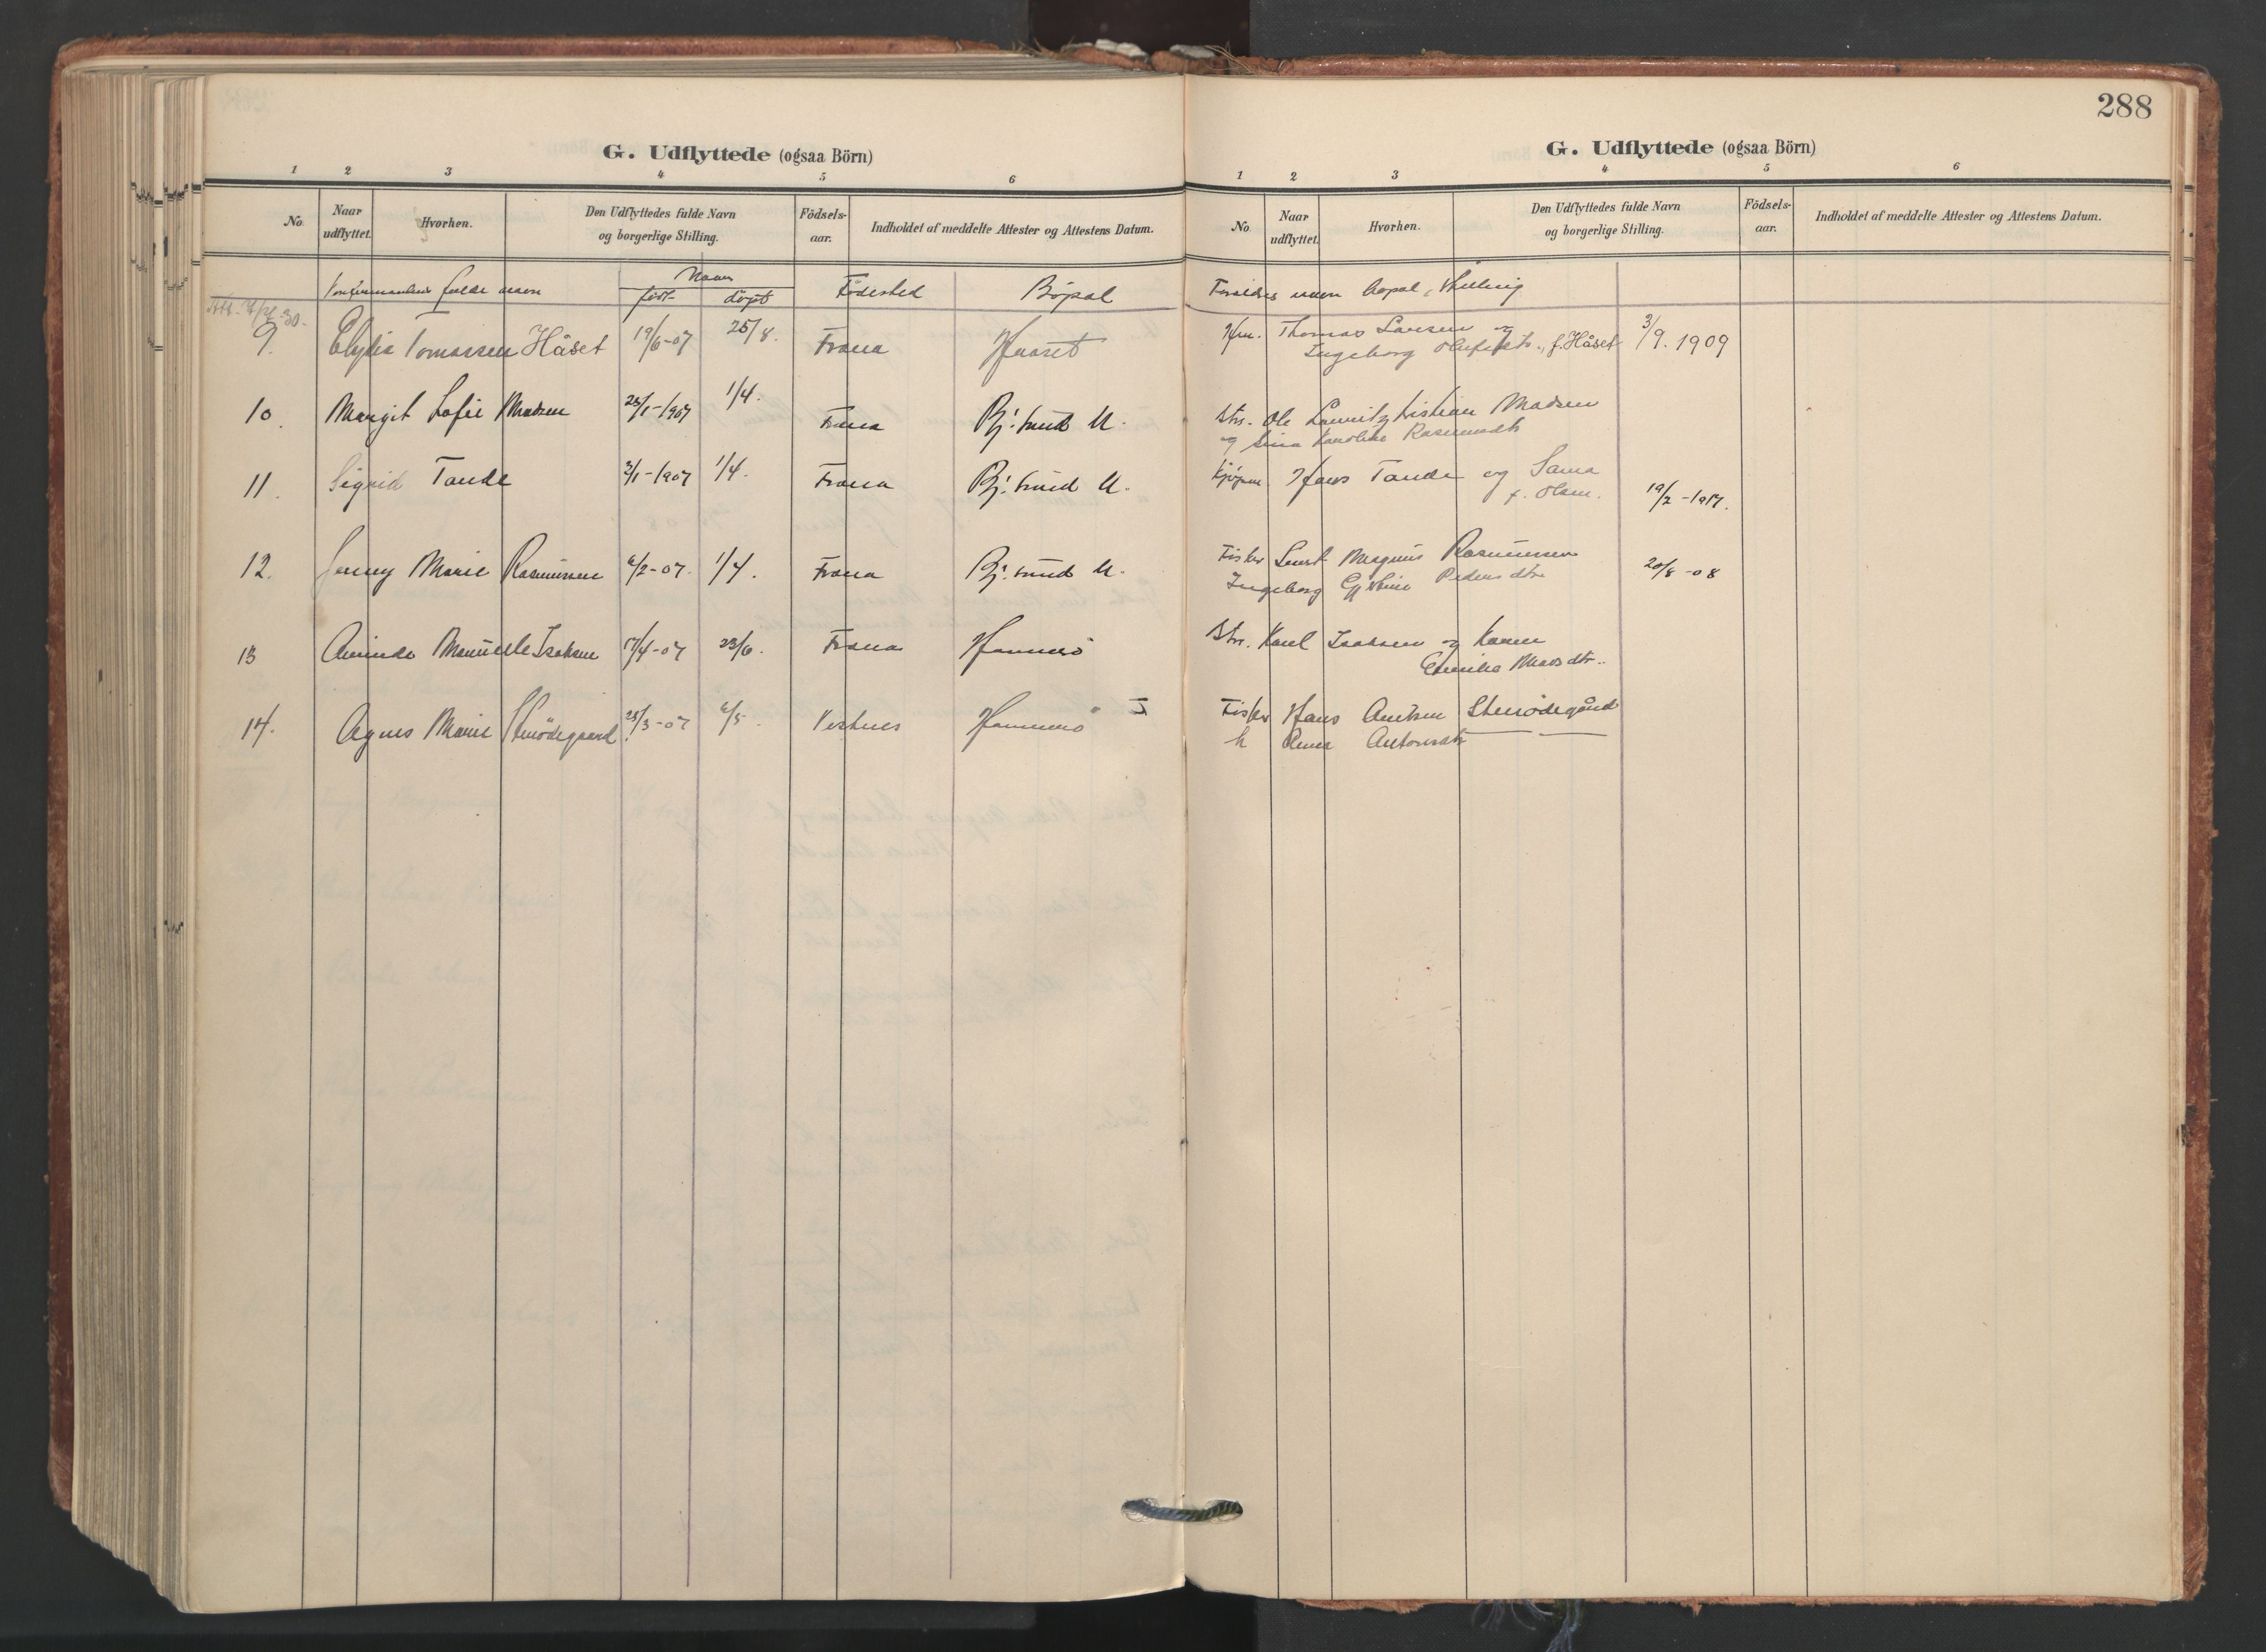 288
G. Udflyttede (ogsaa Börn)
1 2 3 4 5 6
No. Naar udflyttet. Hvorhen. Den Udflyttedes fulde Navn og borgerlige Stilling. Födsels-aar. Indholdet af meddelte Attester og Attestens Datum.
Konfirmandens fulde navn Naar født døpt Födested Bopal
9. Elydia Tomassen Håset 19/6-07 25/8. Fræna Haaset
10. Margit Sofie Madsen 1/4. Fræna Bj:sund U.
11. Sigrid Tande 3/1-1907 1/4. Fræna Bj:sund U.
12. Jenny Marie Rasmussen 6/2-07. 1/4. Fræna Bj:sund U.
13 Isaksen 17/4-07 23/6. Fræna Hammerö
14. Agnes Marie Stenødegaard 25/3-07 6/5. Vestnes Hammerö
G. Udflyttede (ogsaa Börn)
1 2 3 4 5 6
No. Naar udflyttet. Hvorhen. Den Udflyttedes fulde Navn og borgerlige Stilling. Födsels-aar. Indholdet af meddelte Attester og Attestens Datum.
Foreldres navn bopal, Stilling
Thomas Larsen og 3/9. 1909
Ingeborg f. Håset
Str. Ole Kristian Madsen
og Rasmusdtr
Kjøpm. Hans Tande og
f. Olsen. 19/2-1917.
Fisker Magnus Rasmussen 20/8-08
Ingeborg Pedersdtr
Str. Karl Isaksen og Karen
Madsdtr.
Fisker Hans Stenødegård
h Anna Antonsdtr